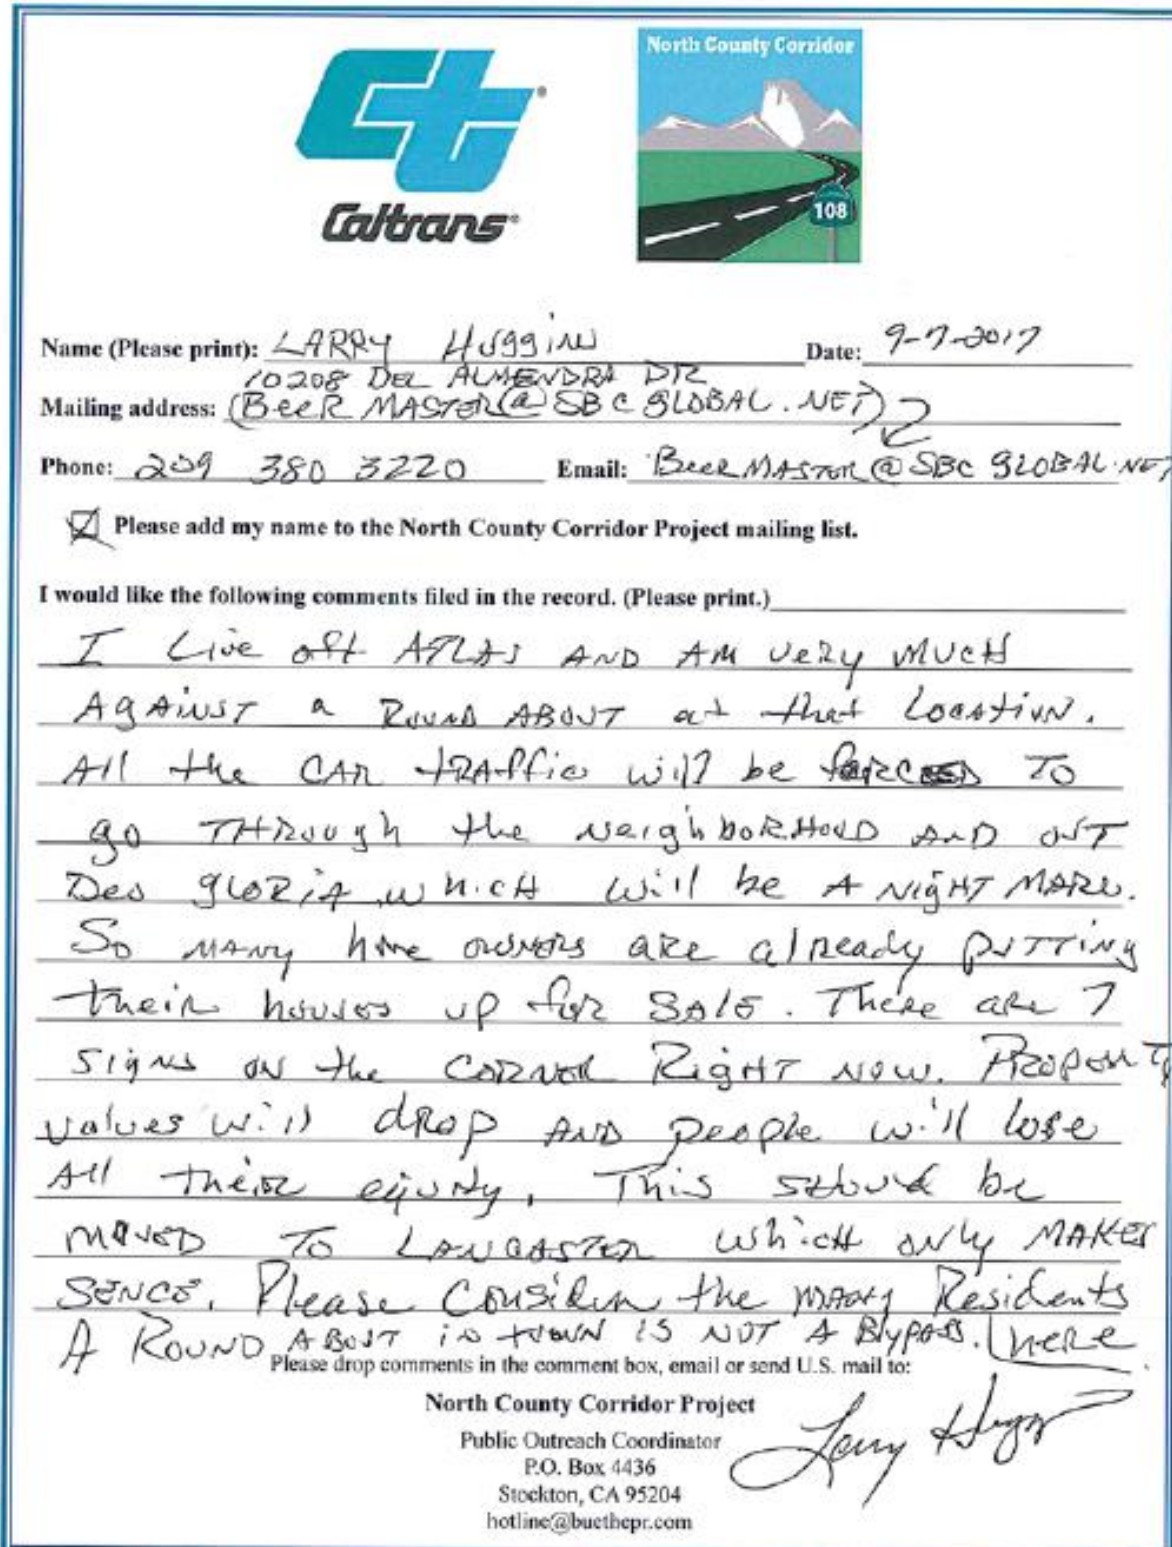 Ct
Caltrans
North County Corridor
108
Name (Please print): LARRY HUGGINS Date: 9-7-2017
10208 DEL ALMENDRA DR
Mailing address: (BeeR MASTER@SBCGLOBAL.NET)
Phone: 209 380 3220 Email: BeeRMASTER@SBCGLOBAL.NET
Please add my name to the North County Corridor Project mailing list.
I would like the following comments filed in the record. (Please print.)
I Live off ATLAS AND AM very MUCH
AgAiNST a RoUND ABOUT at that LocATioN.
All the CAR tRAffic will be foRCED TO
go THRough the NeighboRHOOD AND OUT
Deo gLORiA which will be A NigHT MARe.
So MANy home owNeRs aRe alReady puTTiNg
their houses up foR SAlE. TheRe aRe 7
SigNs oN the CoRNeR RigHT Now. PRopeRTy
values will dRop AND people will lose
All TheiR equity. This should be
moveD To LANCASTER which oNly MAKES
SENCE. Please CoNsideR the maNy ResideNts
here
A RoUND ABouT iN towN iS NoT A BlypAss.
Please drop comments in the comment box, email or send U.S. mail to:
North County Corridor Project
Public Outreach Coordinator
P.O. Box 4436
Stockton, CA 95204
hotline@buethepr.com
Larry Hugg